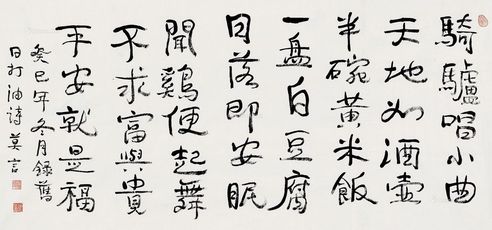 騎驢唱小曲
天地如酒壺
半碗黃米飯
一盘白豆腐
日落即安眠
聞鷄便起舞
不求富與貴
平安就是福
癸巳年冬月錄舊
日打油詩莫言